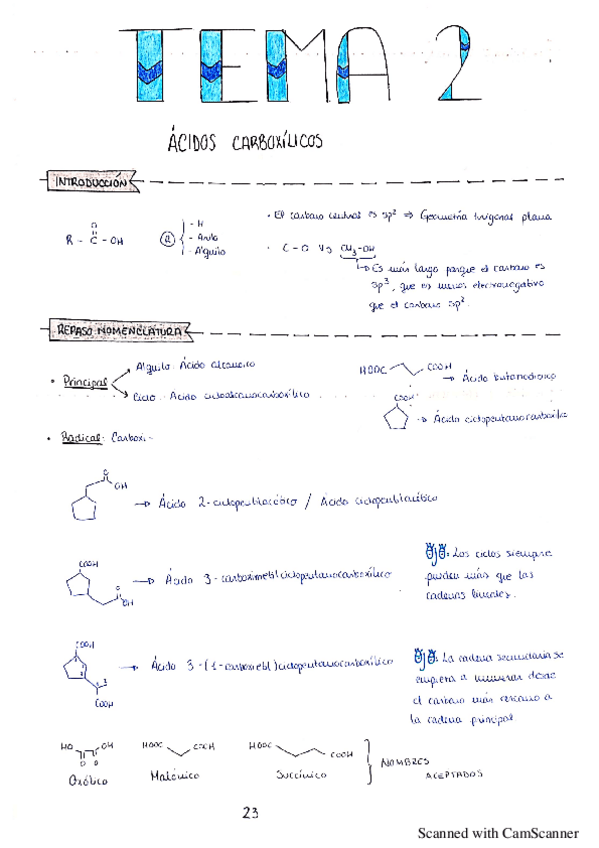 TEMA 2
ÁCIDOS CARBOXÍLICOS
INTRODUCCIÓN
R - C - OH
O
R
- H
- Arilo
- Alquilo
· El carbono central es sp² ⇒ Geometría trigonal plana
· C-O Vs CH₃-OH
Es más largo porque el carbono es
sp³, que es menos electronegativo
que el carbono sp².
REPASO NOMENCLATURA
· Principal
Alquilo: Ácido alcanoico
Ciclo: Ácido cicloalcanocarboxílico
HOOC COOH
→ Ácido butanodioico
COOH
→ Ácido ciclopentanocarboxílico
· Radical: Carboxi-
O
OH
→ Ácido 2-ciclopentilacético / Ácido ciclopentilacético
COOH
O
OH
→ Ácido 3-carboximetilciclopentanocarboxílico
Ojo: Los ciclos siempre
pueden más que las
cadenas lineales.
COOH
COOH
→ Ácido 3-(1-carboxietil)ciclopentanocarboxílico
Ojo: La cadena secundaria se
empieza a numerar desde
el carbono más cercano a
la cadena principal
HO OH
O O
Oxálico
HOOC COOH
Malónico
HOOC COOH
Succínico
NOMBRES
ACEPTADOS
23
Scanned with CamScanner